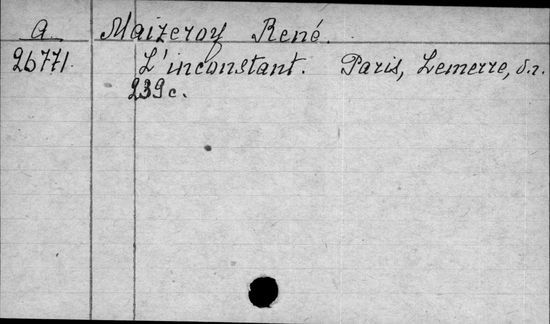 A Maizeroy René.
26771. L'inconstant. Paris, Lemerre, б.г.
239 с.